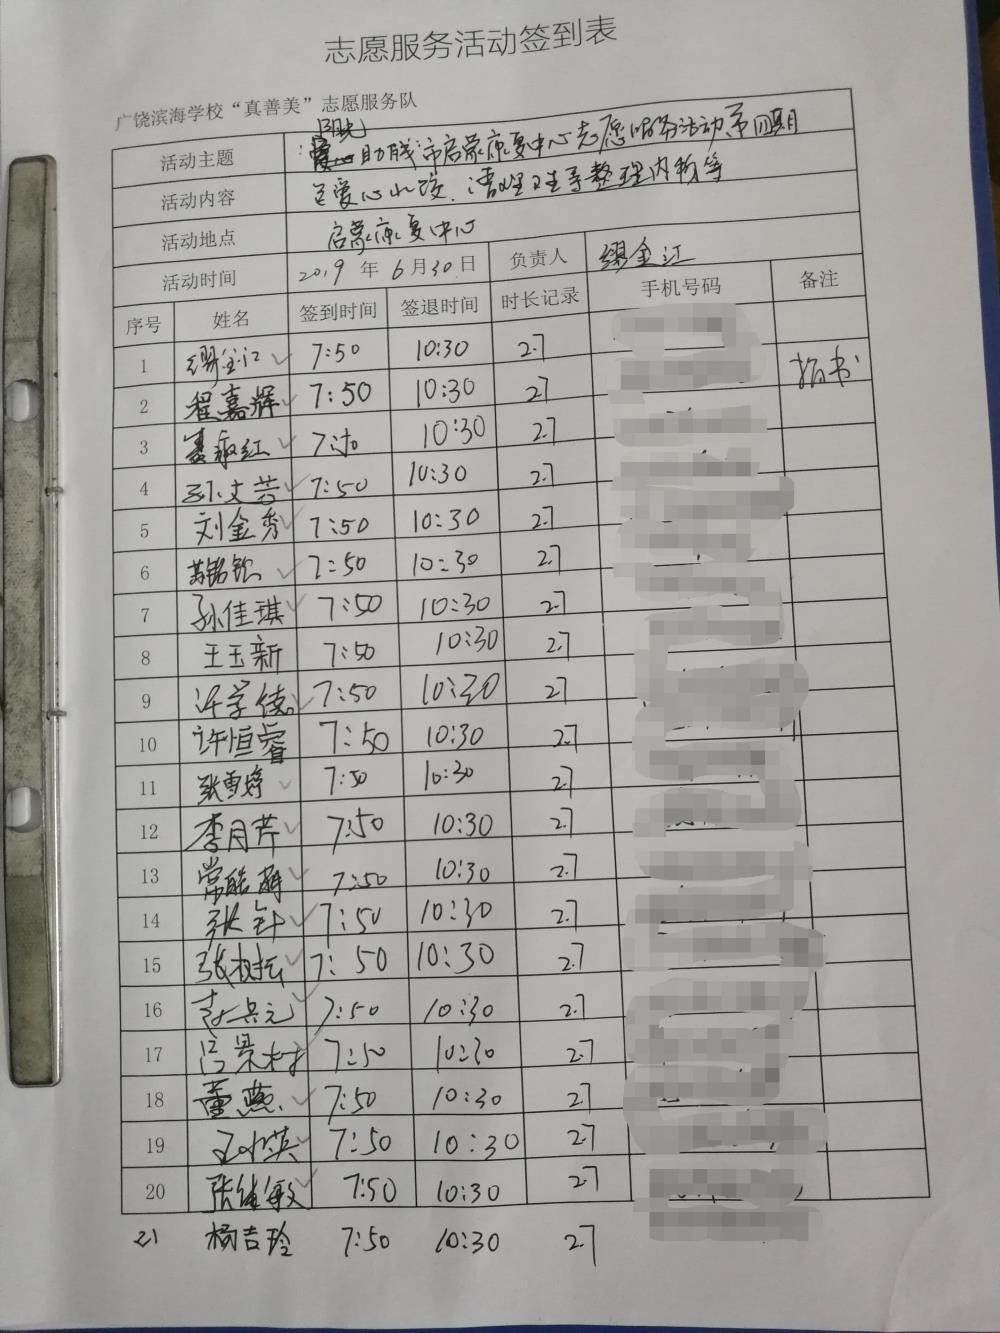 志愿服务活动签到表
广饶滨海学校“真善美”志愿服务队
阳光
活动主题 助残 市启蒙康复中心志愿服务活动第四期
活动内容 爱心 整理内务等
活动地点 启蒙康复中心
活动时间 2019年6月30日 负责人 缪金江
序号 姓名 签到时间 签退时间 时长记录 手机号码 备注
1 缪金江 7:50 10:30 2.7
2 程嘉辉 7:50 10:30 2.7 捐书
3 永红 7:50 10:30 2.7
4 孙文芳 7:50 10:30 2.7
5 刘金秀 7:50 10:30 2.7
6 7:50 10:30 2.7
7 孙佳琪 7:50 10:30 2.7
8 王玉新 7:50 10:30 2.7
9 许学德 7:50 10:30 2.7
10 许恒睿 7:50 10:30 2.7
11 张雪婷 7:50 10:30 2.7
12 李月芹 7:50 10:30 2.7
13 常皓 7:50 10:30 2.7
14 张 7:50 10:30 2.7
15 张 7:50 10:30 2.7
16 兵元 7:50 10:30 2.7
17 吕景村 7:50 10:30 2.7
18 董燕 7:50 10:30 2.7
19 王 英 7:50 10:30 2.7
20 张 敏 7:50 10:30 2.7
21 杨吉玲 7:50 10:30 2.7